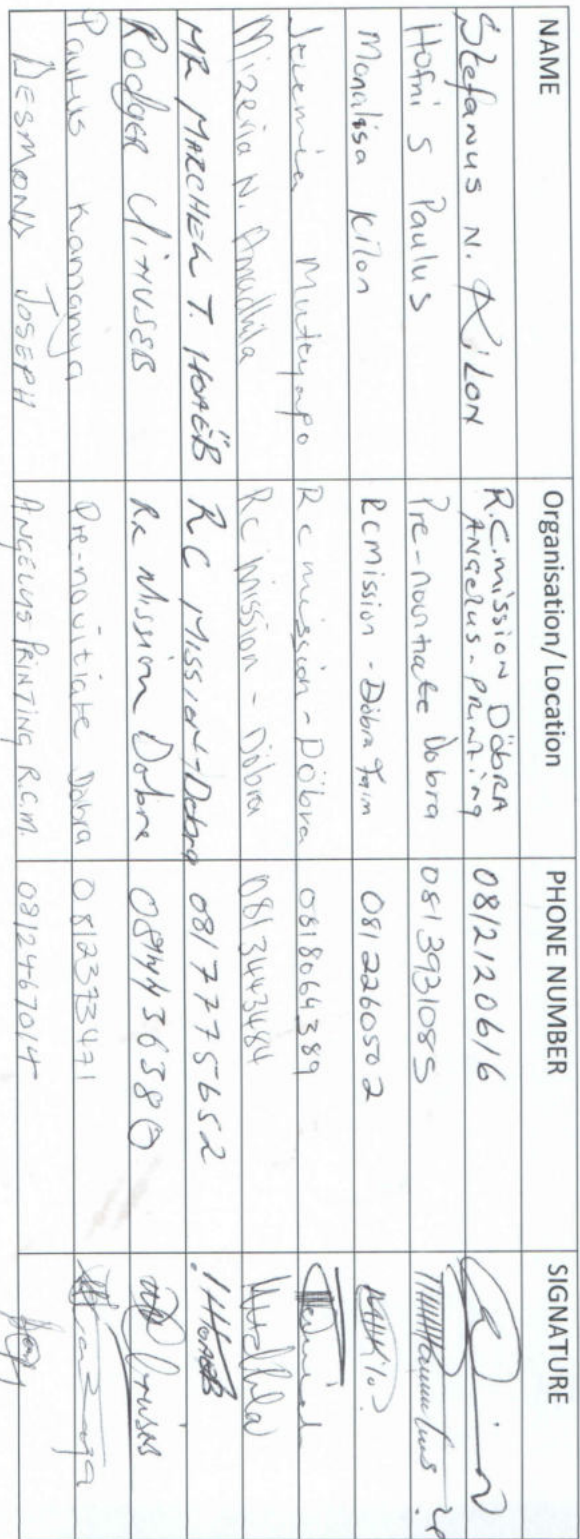 NAME Organisation/Location PHONE NUMBER SIGNATURE
Stefanus N. Kilon R.C.mission Döbra Angelus-Printing 0812120616
Hofni S Paulus Pre-novitiate Dobra 0813931085
Monalisa Kilon RC Mission - Döbra Farm 0812260502
Jeremia Muteyapo Rc mission - Döbra 0818064389
Mizeria N. Amadhila Rc Mission - Döbra 0813443484
MR MARCHEL T. HOAËB RC MISSION-Dobra 0817775652
Rodger Rc Mission Dobra
Paulus Kamanya Pre-novitiate Dobra 0812373471
DESMOND JOSEPH ANGELUS PRINTING R.C.M. 0812467014